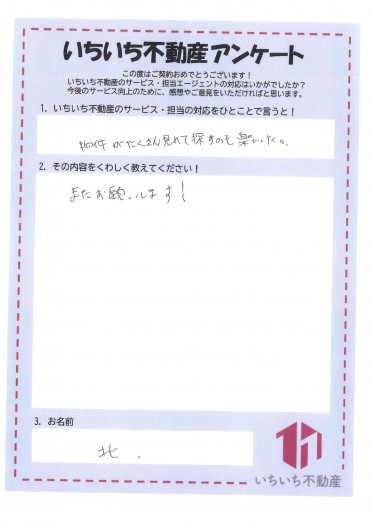 いちいち不動産アンケート
この度はご契約おめでとうございます！
いちいち不動産のサービス・担当エージェントの対応はいかがでしたか？
今後のサービス向上のために、感想やご意見をいただければと思います。
1. いちいち不動産のサービス・担当の対応をひとことで言うと！
物件がたくさん見れて探すのも楽でした。
2. その内容をくわしく教えてください！
またお願いします！
3. お名前
北.
いちいち不動産